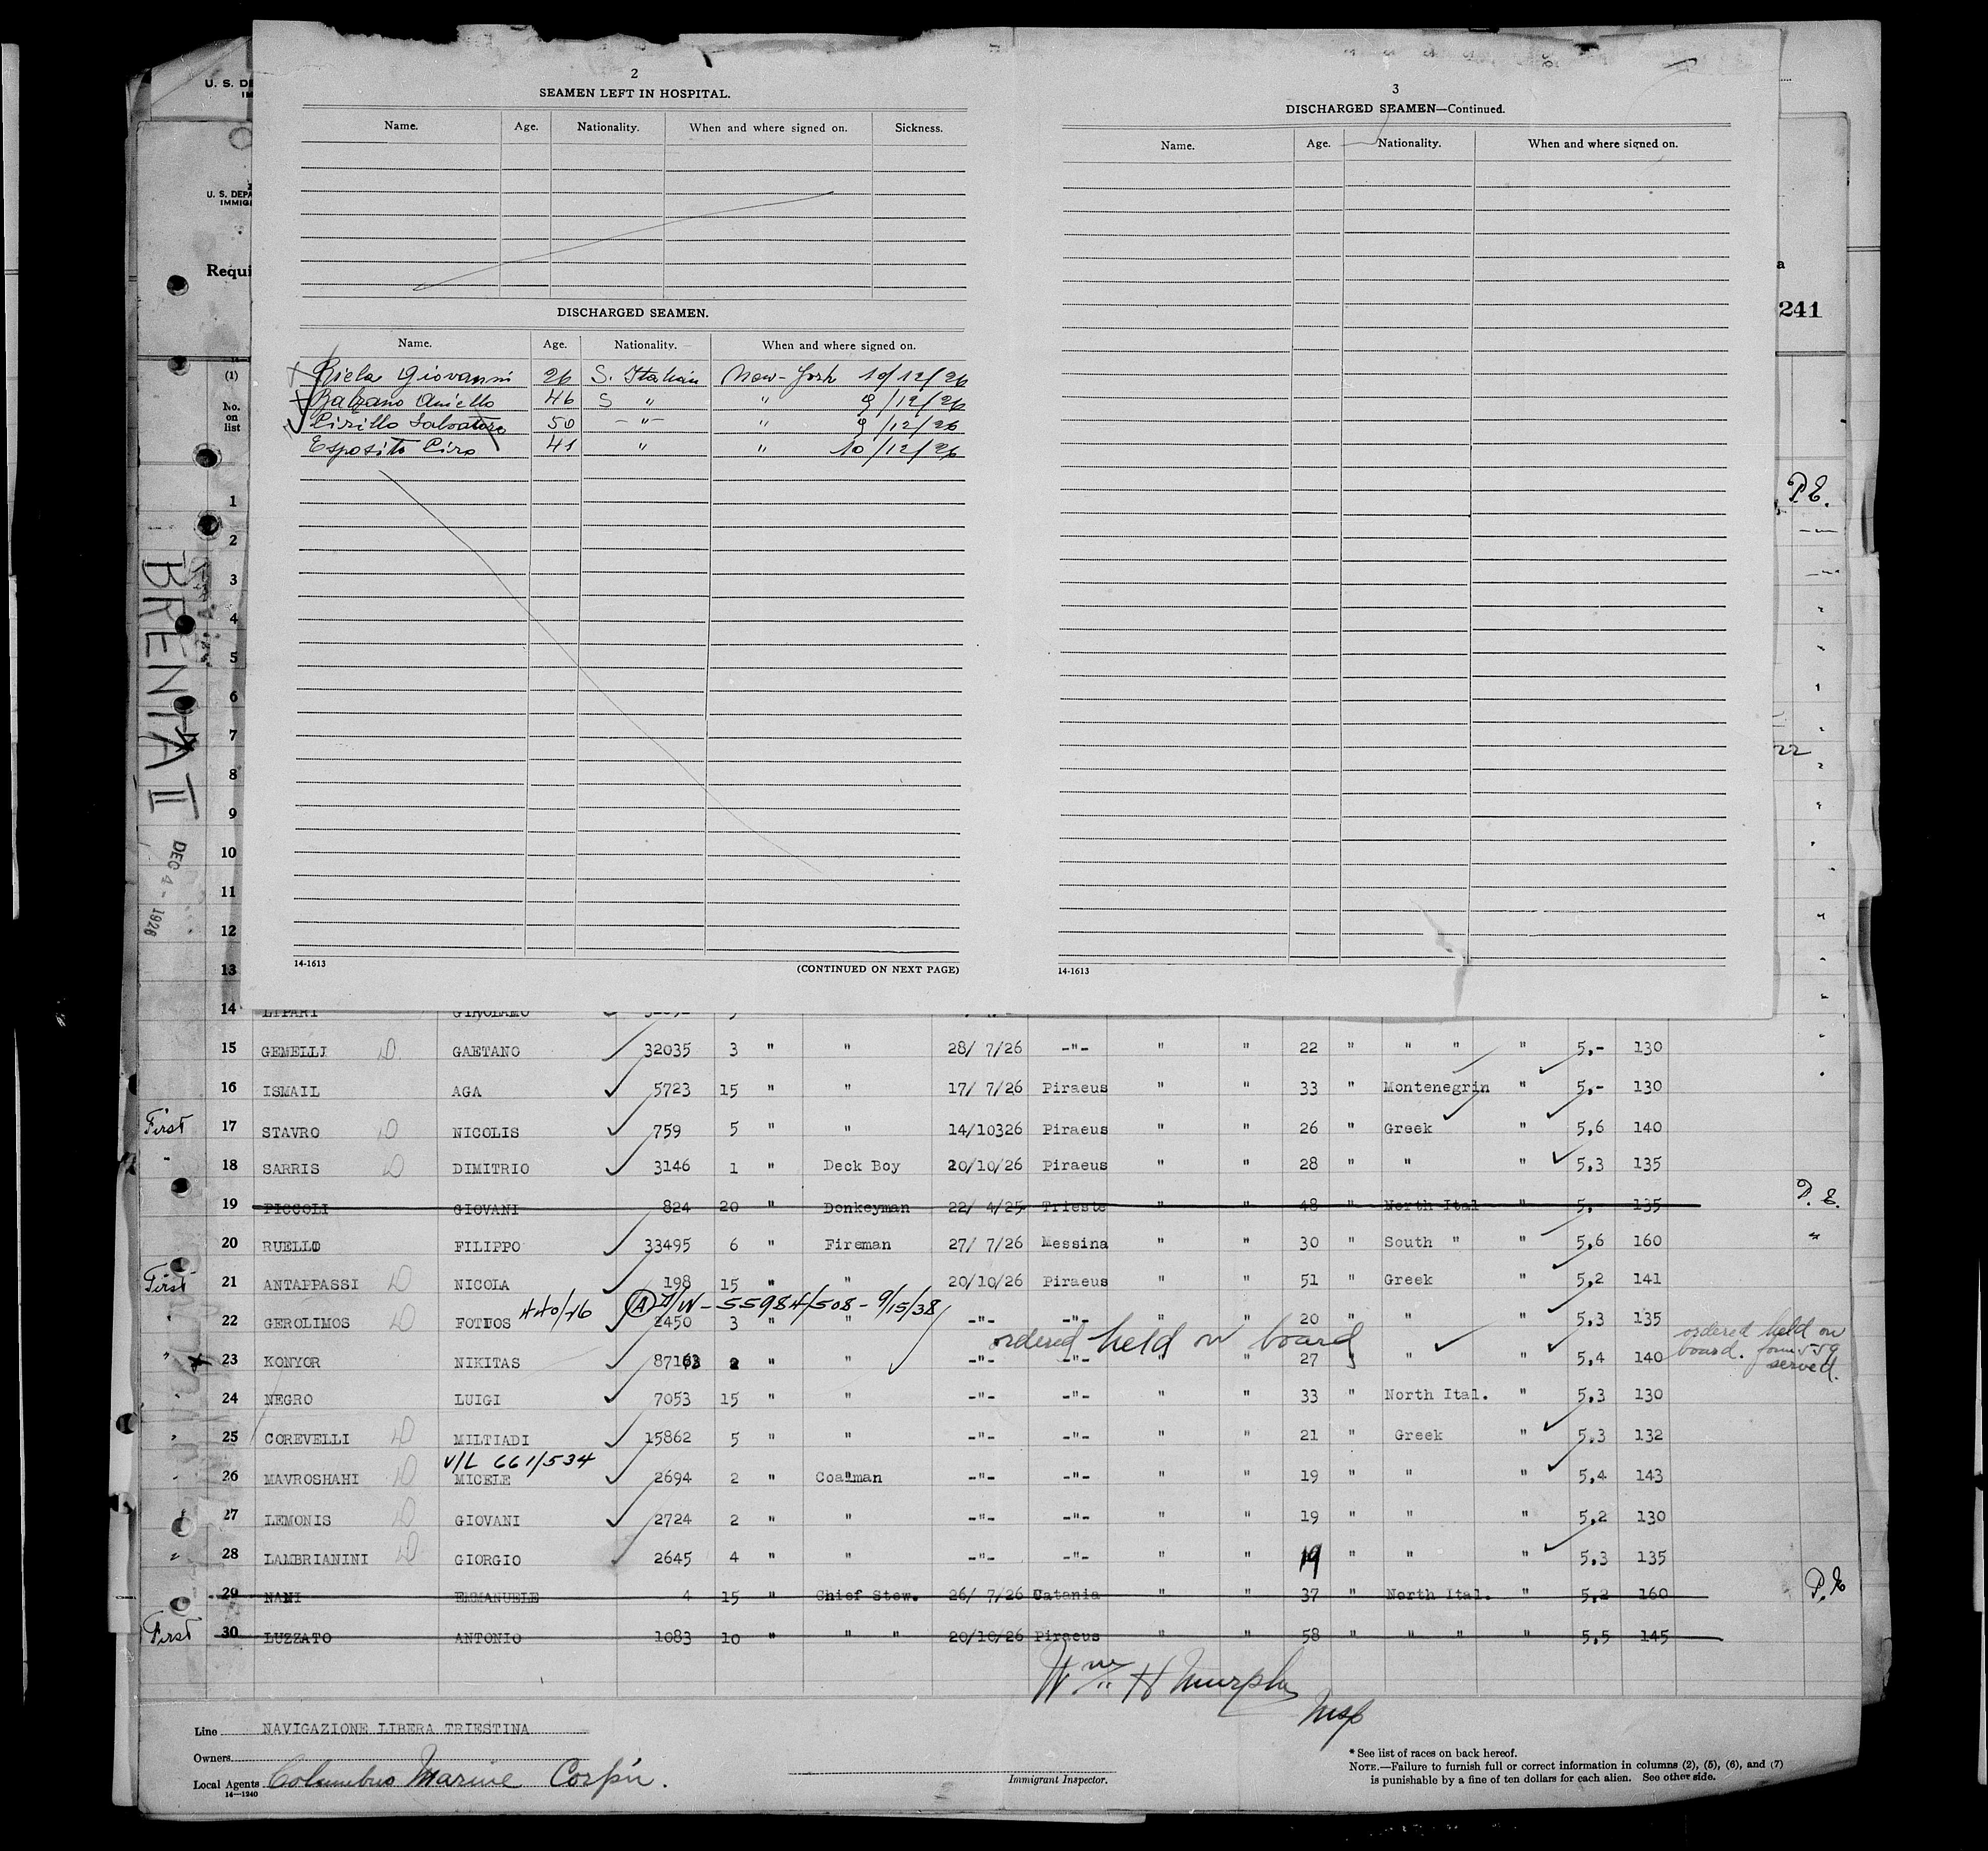 U. S. DE
IM
U. S. DEPA
IMMIG
Requi
(1)
No.
on
list
2
SEAMEN LEFT IN HOSPITAL.
Name. Age. Nationality. When and where signed on. Sickness.
DISCHARGED SEAMEN.
Name. Age. Nationality. When and where signed on.
Giovanni 26 S. Italian New-York 10/12/26
Balzano Aniello 46 S " " 9/12/26
Cirillo Salvatore 50 -"- " 9/12/26
Esposito Ciro 41 " " 10/12/26
14-1613 (CONTINUED ON NEXT PAGE)
3
DISCHARGED SEAMEN—Continued.
Name. Age. Nationality. When and where signed on.
14-1613
a
241
P.E.
22
BRENTA II
DEC 4 - 1926
1
2
3
4
5
6
7
8
9
10
11
12
13
14 LIPARI GIROLAMO
15 GEMELLI D GAETANO 32035 3 " " 28/ 7/26 -"- " " 22 " " " " 5,- 130
16 ISMAIL AGA 5723 15 " " 17/ 7/26 Piraeus " " 33 " Montenegrin " 5,- 130
First 17 STAVRO D NICOLIS 759 5 " " 14/10326 Piraeus " " 26 " Greek " 5,6 140
" 18 SARRIS D DIMITRIO 3146 1 " Deck Boy 20/10/26 Piraeus " " 28 " " " 5,3 135
19 PICCOLI GIOVANI 824 20 " Donkeyman 22/ 4/25 Trieste " " 48 " North Ital " 5,- 135 P.E.
20 RUELLO FILIPPO 33495 6 " Fireman 27/ 7/26 Messina " " 30 " South " " 5,6 160 "
First 21 ANTAPPASSI D NICOLA 198 15 " " 20/10/26 Piraeus " " 51 " Greek " 5,2 141
440/46 (A) W - 55984/508 - 9/15/38
22 GEROLIMOS D FOTIOS 2450 3 " " -"- -"- " " 20 " " " 5,3 135
ordered held on board
" x 23 KONYOR NIKITAS 87163 2 " " -"- -"- " " 27 " " " 5,4 140
ordered held on
board. form 559
served.
24 NEGRO LUIGI 7053 15 " " -"- -"- " " 33 " North Ital. " 5,3 130
" 25 COREVELLI D MILTIADI 15862 5 " " -"- -"- " " 21 " Greek " 5,3 132
V/L 661/534
26 MAVROSHAHI D MICELE 2694 2 " Coalman -"- -"- " " 19 " " " 5,4 143
" 27 LEMONIS D GIOVANI 2724 2 " " -"- -"- " " 19 " " " 5,2 130
" 28 LAMBRIANINI D GIORGIO 2645 4 " " -"- -"- " " 19 " " " 5,3 135
29 NANI EMMANUELE 4 15 " Chief Stew. 26/ 7/26 Catania " " 37 " North Ital. " 5,2 160 P.E
First 30 LUZZATO ANTONIO 1083 10 " " " 20/10/26 Piraeus " " 58 " " " " 5,5 145
Wm H Murphy
Insp
Line NAVIGAZIONE LIBERA TRIESTINA
Owners
Local Agents Columbus Marine Corp'n.
14—1240
Immigrant Inspector.
* See list of races on back hereof.
NOTE.—Failure to furnish full or correct information in columns (2), (5), (6), and (7)
is punishable by a fine of ten dollars for each alien. See other side.